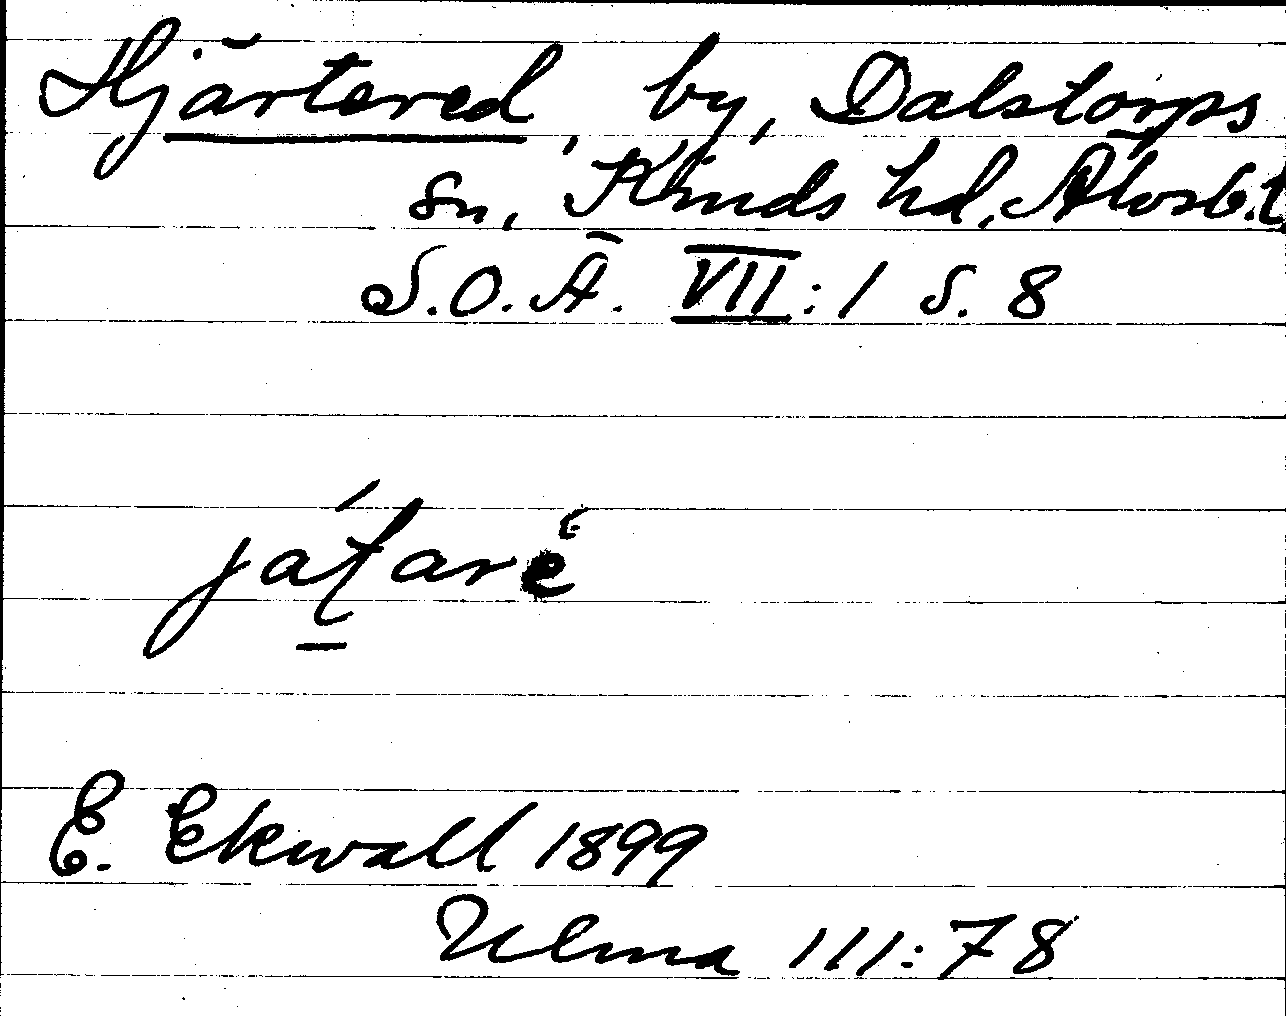 Hjärtered, by, Dalstorps
sn, Kinds hd, Älvsb.l
S.O.Ä. VII:1 s. 8
E. Ekwall 1899
Ulma 111:78